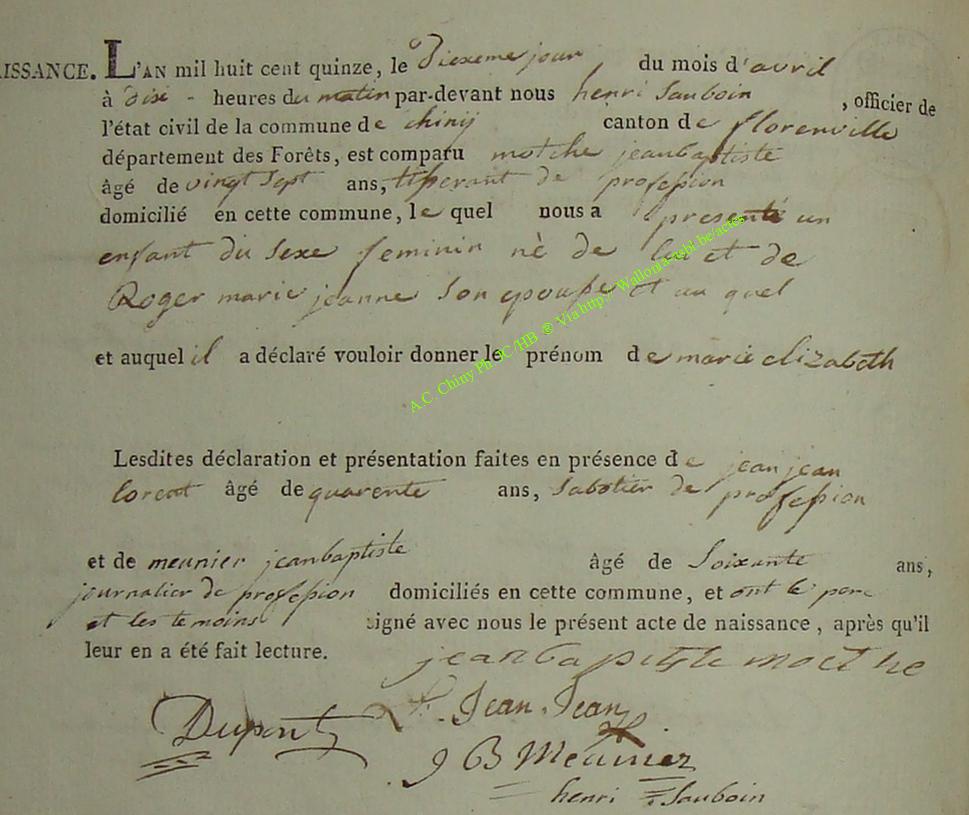 ISSANCE. L'AN mil huit cent quinze, le dixeme jour du mois d'avril
à dix - heures du matin par-devant nous henri Sauboin, officier de
l'état civil de la commune de chinij canton de florenville
département des Forêts, est comparu motche jeanbaptiste
âgé de vingt sept ans, tisserant de profession
domicilié en cette commune, le quel nous a presenté un
enfant du sexe feminin nè de lui et de
Roger marie jeanne son epouse et au quel
et auquel il a déclaré vouloir donner le prénom de marie elizabeth
A.C. Chiny Ph JC/HB @ Via http:/ Wallonia-asbl be/actes
Lesdites déclaration et présentation faites en présence de jean jean
lorent âgé de quarente ans, sabotier de profession
et de meunier jeanbaptiste âgé de soixante ans,
journalier de profession domiciliés en cette commune, et ont le pere
et les temoins signé avec nous le présent acte de naissance, après qu'il
leur en a été fait lecture. jean bapitste moethe
Dupont L. Jean Jean
J B Meunier
henri Sauboin